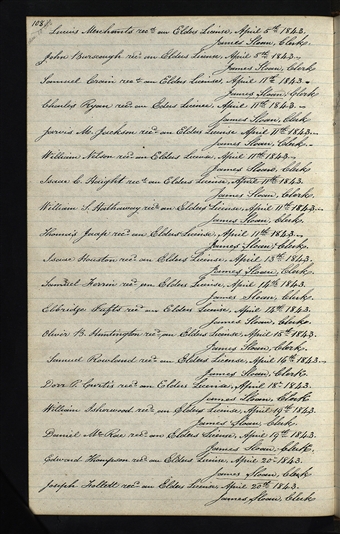 108
Lucius Merchants recd. an Elders License, April 5th 1843.
James Sloan, Clerk.
John Burscough recd. an Elders License, April 5th 1843.
James Sloan, Clerk
Samuel Crain recd. an Elders License, April 11th 1843.
James Sloan, Clerk
Charles Ryan recd. an Elders License, April 11th 1843.
James Sloan, Clerk
Jarvis M. Jackson recd. an Elders License April 11th 1843.
James Sloan, Clerk.
William Nelson recd. an Elders License, April 11th 1843.
James Sloan, Clerk.
Isaac C. Haight recd. an Elders License, April 11th 1843.
James Sloan, Clerk.
William S. Hathaway recd. an Elders License, April 11th 1843.
James Sloan, Clerk.
Thomas Jaap recd. an Elders License, April 11th 1843.
James Sloan, Clerk.
Isaac Houston recd. an Elders License, April 13th 1843.
James Sloan, Clerk.
Samuel Ferrin recd. an Elders License, April 14th 1843.
James Sloan, Clerk.
Elbridge Tufts recd. an Elders License, April 14th 1843.
James Sloan, Clerk.
Oliver B. Huntington recd. an Elders License, April 15th 1843.
James Sloan, Clerk.
Samuel Rowland recd. an Elders License, April 16th 1843.
James Sloan, Clerk.
Dorr P. Curtis recd. an Elders License, April 18th 1843.
James Sloan, Clerk
William Isherwood recd. an Elders License, April 19th 1843.
James Sloan, Clerk.
Daniel McRae recd. an Elders License, April 19th 1843.
James Sloan, Clerk.
Edward Thompson recd. an Elders License, April 20th 1843.
James Sloan, Clerk
Joseph Follett recd. an Elders License April 20th 1843.
James Sloan, Clerk